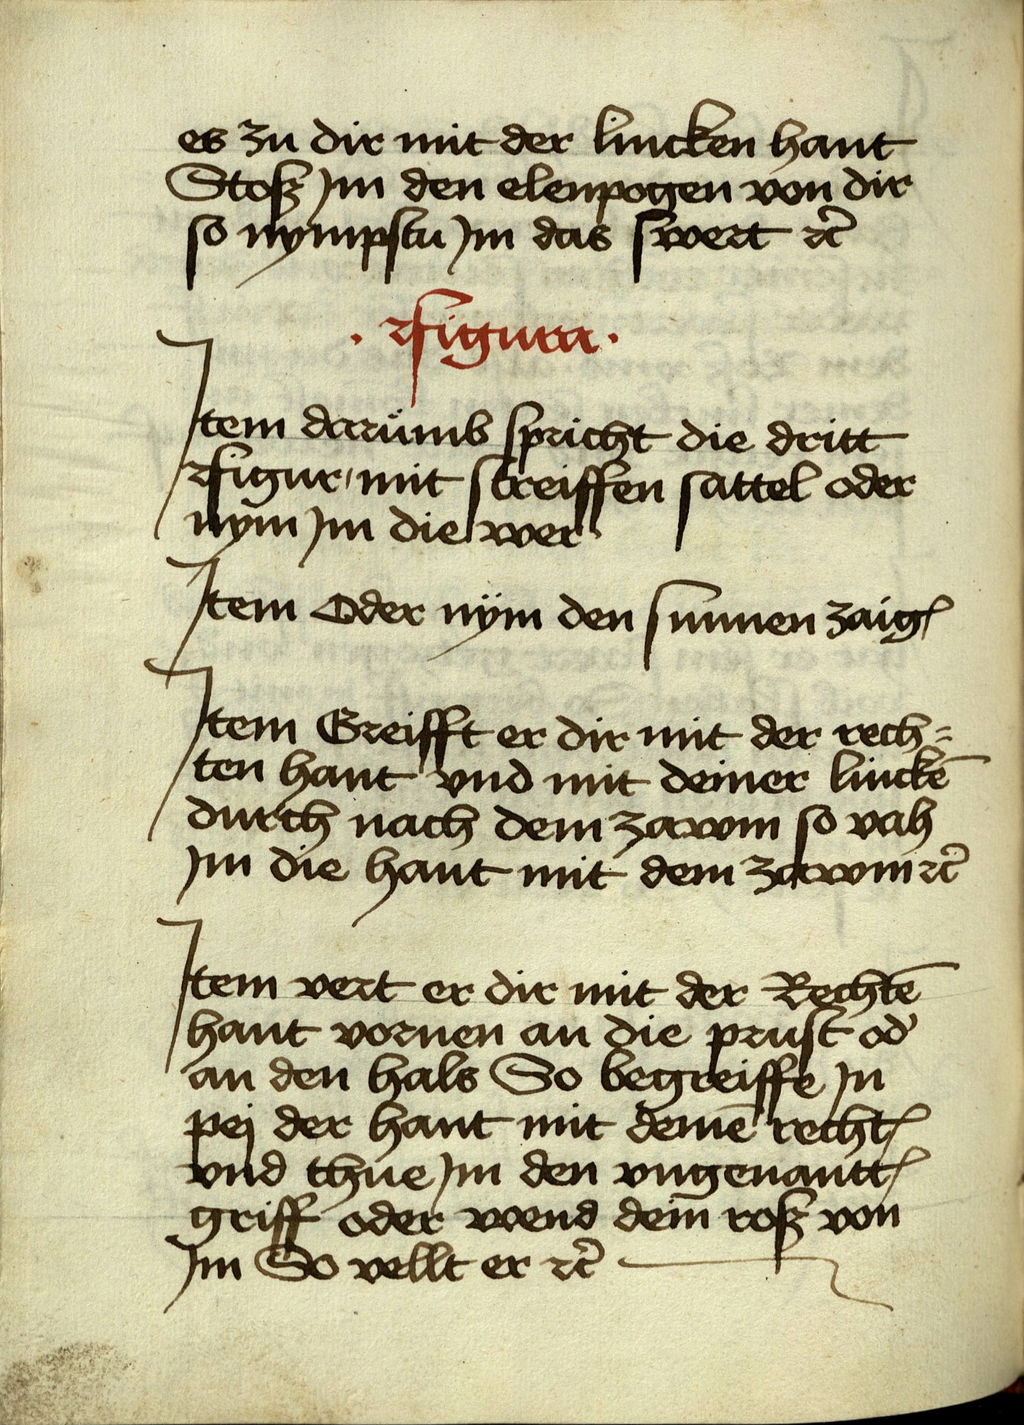 es zu dir mit der lincken hant
Stosz Jm den elenpogen von dir
so nympstu Jm das swert ⁊c̃
· ffigura ·
Jtem darümb spricht die dritt
ffigur mit streiffen sattel oder
nym Jm die wer
Jtem Oder nÿm den sunnen zaig̃
Jtem Greifft er dir mit der rech-
ten hant vnd mit deiner linckē
durch nach dem zawm so vah
Jm die hant mit dem zawm ⁊c̃
Jtem vert er dir mit der Rechtē
hant vornen an die prust od'
an den hals So begreiffe Jn
pej der hant mit deinē recht̃
vnd thue Jm den vngenantt̃
griff oder wend dein̄ rosz von
Jm So vellt er ⁊c̃